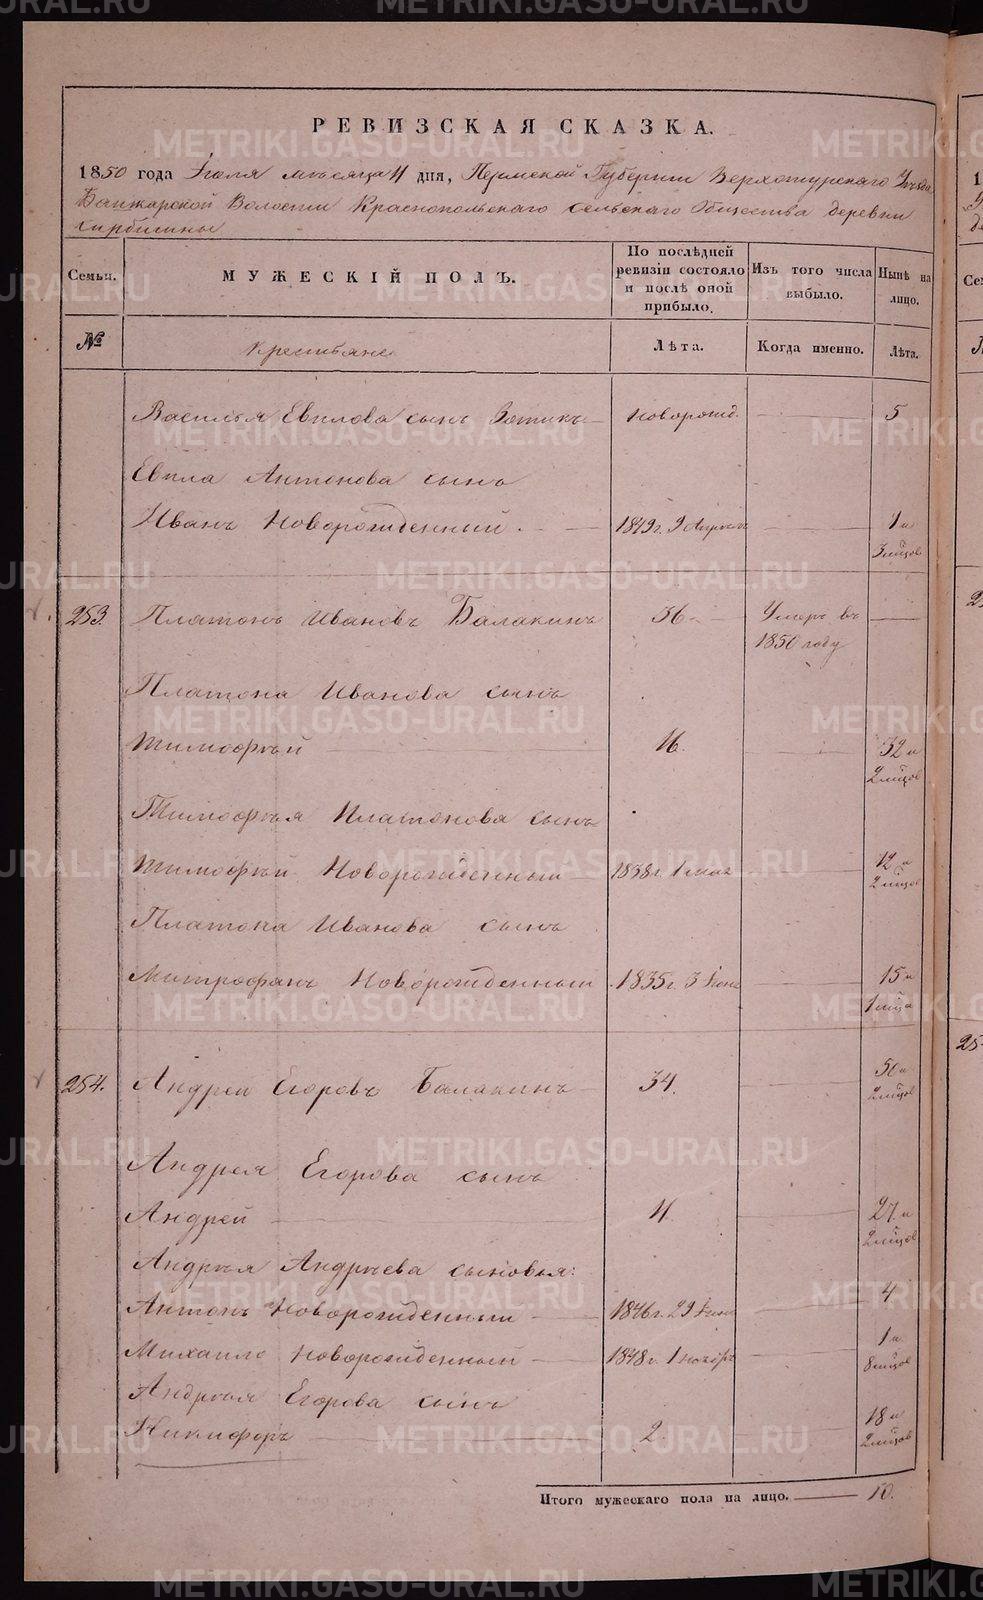 РЕВИЗСКАЯ СКАЗКА.
1850 года Июля мѣсяца 11 дня, Пермской Губерніи Верхотурскаго Уѣзда
Волости Краснопольскаго сельскаго Общества деревни
Семьи. МУЖЕСКІЙ ПОЛЪ. По послѣдней ревизіи состояло и послѣ оной прибыло. Изъ того числа выбыло. Нынѣ на лицо.
№ Крестьяне Лѣта. Когда именно. Лѣта.
Василья Еввлова сынъ Зотикъ новорожд. 5
Еввла Антонова сынъ
Иванъ Новорожденный. 1849 г. 9 Апреля 1 и 3 мѣцов
253. Платонъ Ивановъ Балакинъ 36. Умеръ въ 1850 году
Платона Иванова сынъ
Тимофѣй 16. 32 и 2 мѣцов
Тимофѣя Платонова сынъ
Тимофѣй Новорожденный 1838 г. 1 мая 12 и 2 мѣцов
Платона Иванова сынъ
Митрофанъ Новорожденный 1835 г. 3 Іюня 15 и 1 мѣца
254. Андрей Егоровъ Балакинъ 34. 50 и 2 мѣцов
Андрея Егорова сынъ
Андрей 11. 27 и 2 мѣцов
Андрѣя Андрѣева сыновья:
Антонъ Новорожденный 1846 г. 29 Іюня 4
Михаило новорожденный 1848 г. 1 ноября 1 и 8 мѣцов
Андрѣя Егорова сынъ
Никифоръ 2. 18 и 2 мѣцов
Итого мужескаго пола на лицо. 10.
METRIKI.GASO-URAL.RU